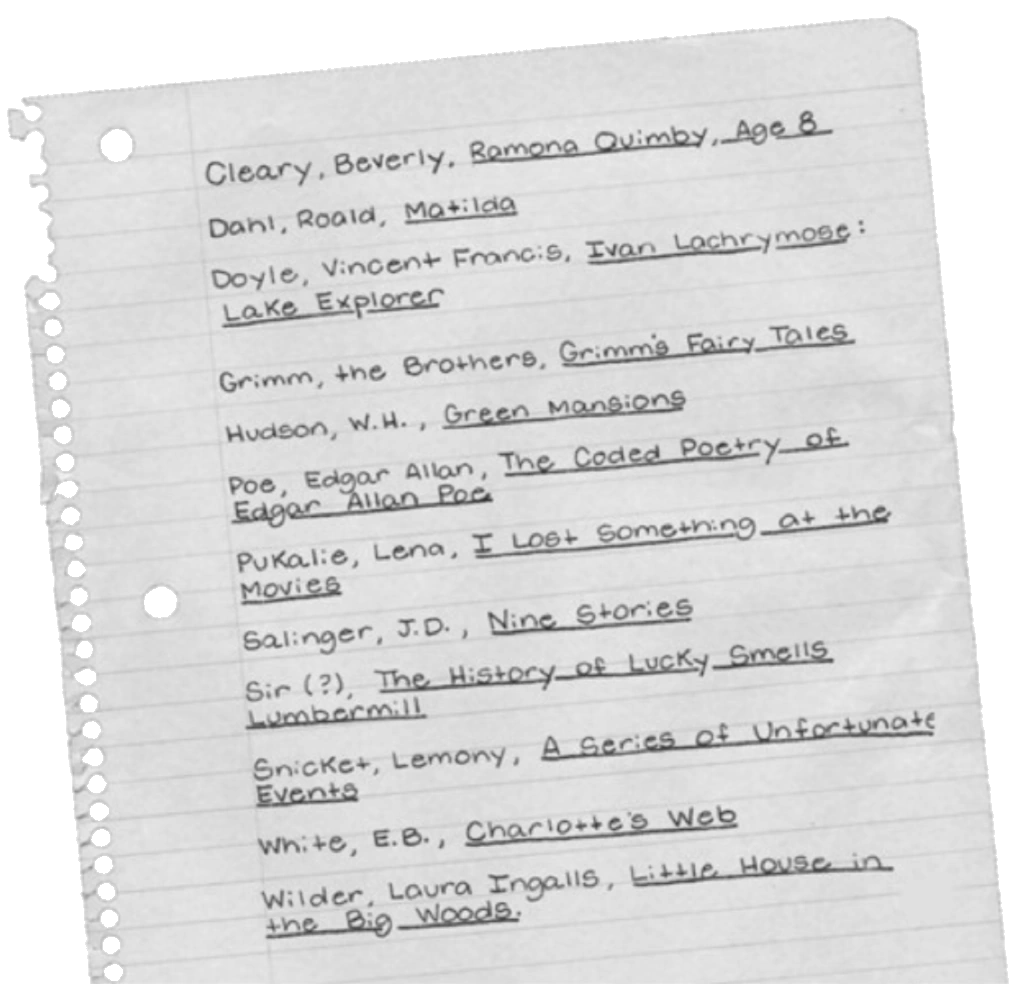 Cleary, Beverly, Ramona Quimby, Age 8
Dahl, Roald, Matilda
Doyle, Vincent Francis, Ivan Lachrymose:
Lake Explorer
Grimm, the Brothers, Grimm's Fairy Tales
Hudson, W.H., Green Mansions
Poe, Edgar Allan, The Coded Poetry of
Edgar Allan Poe
Pukalie, Lena, I Lost Something at the
Movies
Salinger, J.D., Nine Stories
Sir (?), The History of Lucky Smells
Lumbermill
Snicket, Lemony, A Series of Unfortunate
Events
White, E.B., Charlotte's Web
Wilder, Laura Ingalls, Little House in
the Big Woods.